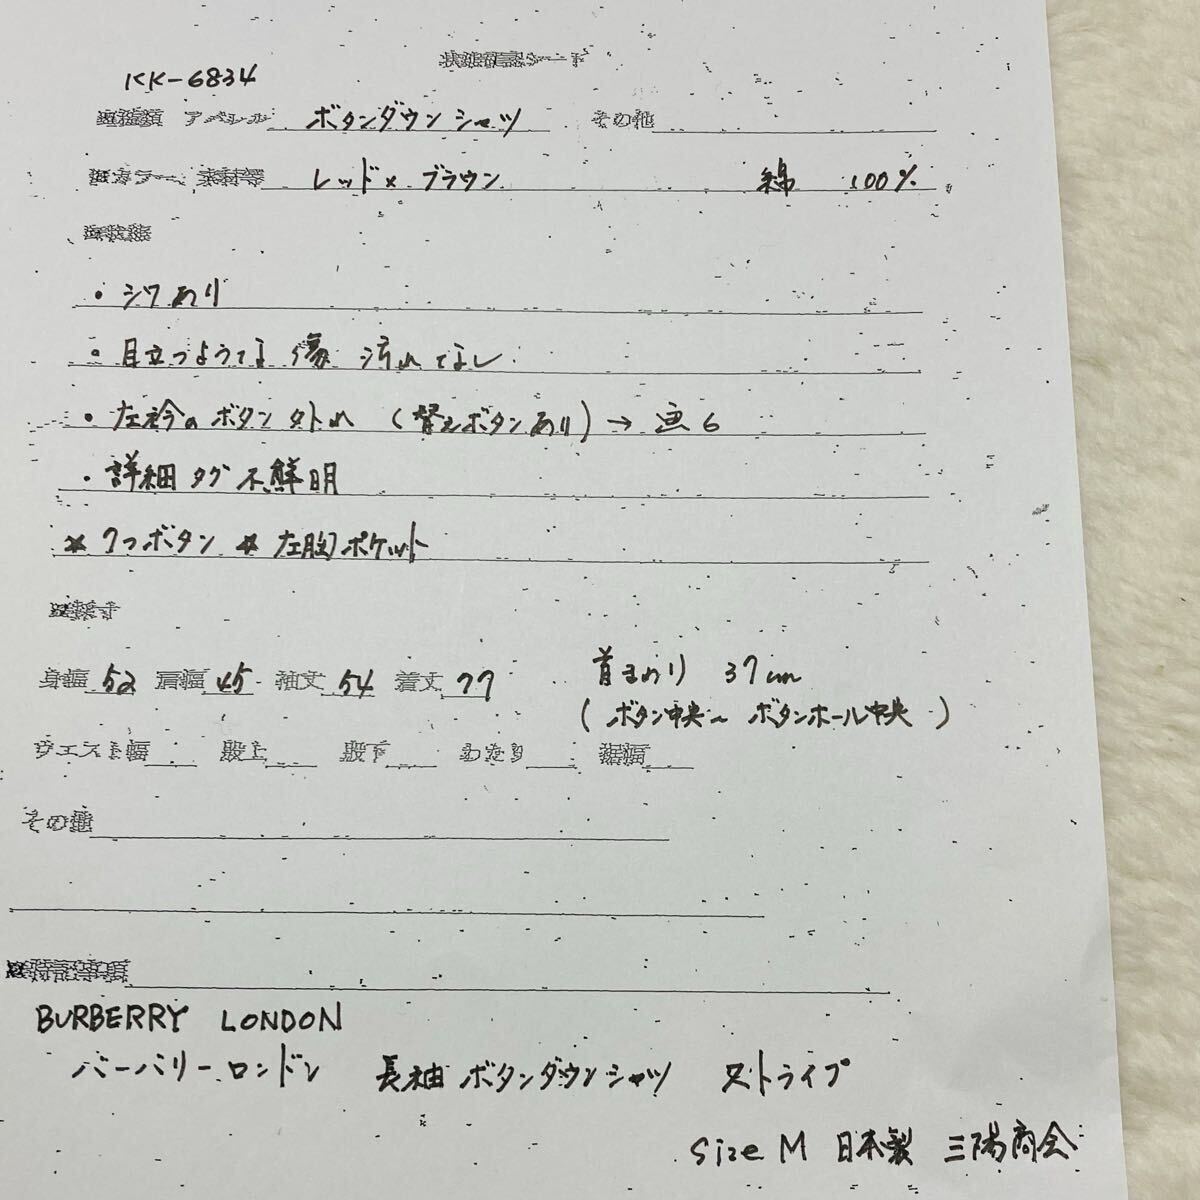 状態確認シート
KK-6834
アパレル ボタンダウンシャツ その他
カラー、素材等 レッド×ブラウン 綿 100%
・シワあり
・目立つような傷 汚れなし
・左衿のボタン外れ (替えボタンあり) → 画6
・詳細タグ不鮮明
* 7つボタン * 左胸ポケット
身幅 52 肩幅 45 袖丈 54 着丈 77 首まわり 37cm
(ボタン中央~ボタンホール中央)
ウエスト幅 股上 股下 わたり 裾幅
その他
特記事項
BURBERRY LONDON
バーバリーロンドン 長袖ボタンダウンシャツ ストライプ
size M 日本製 三陽商会